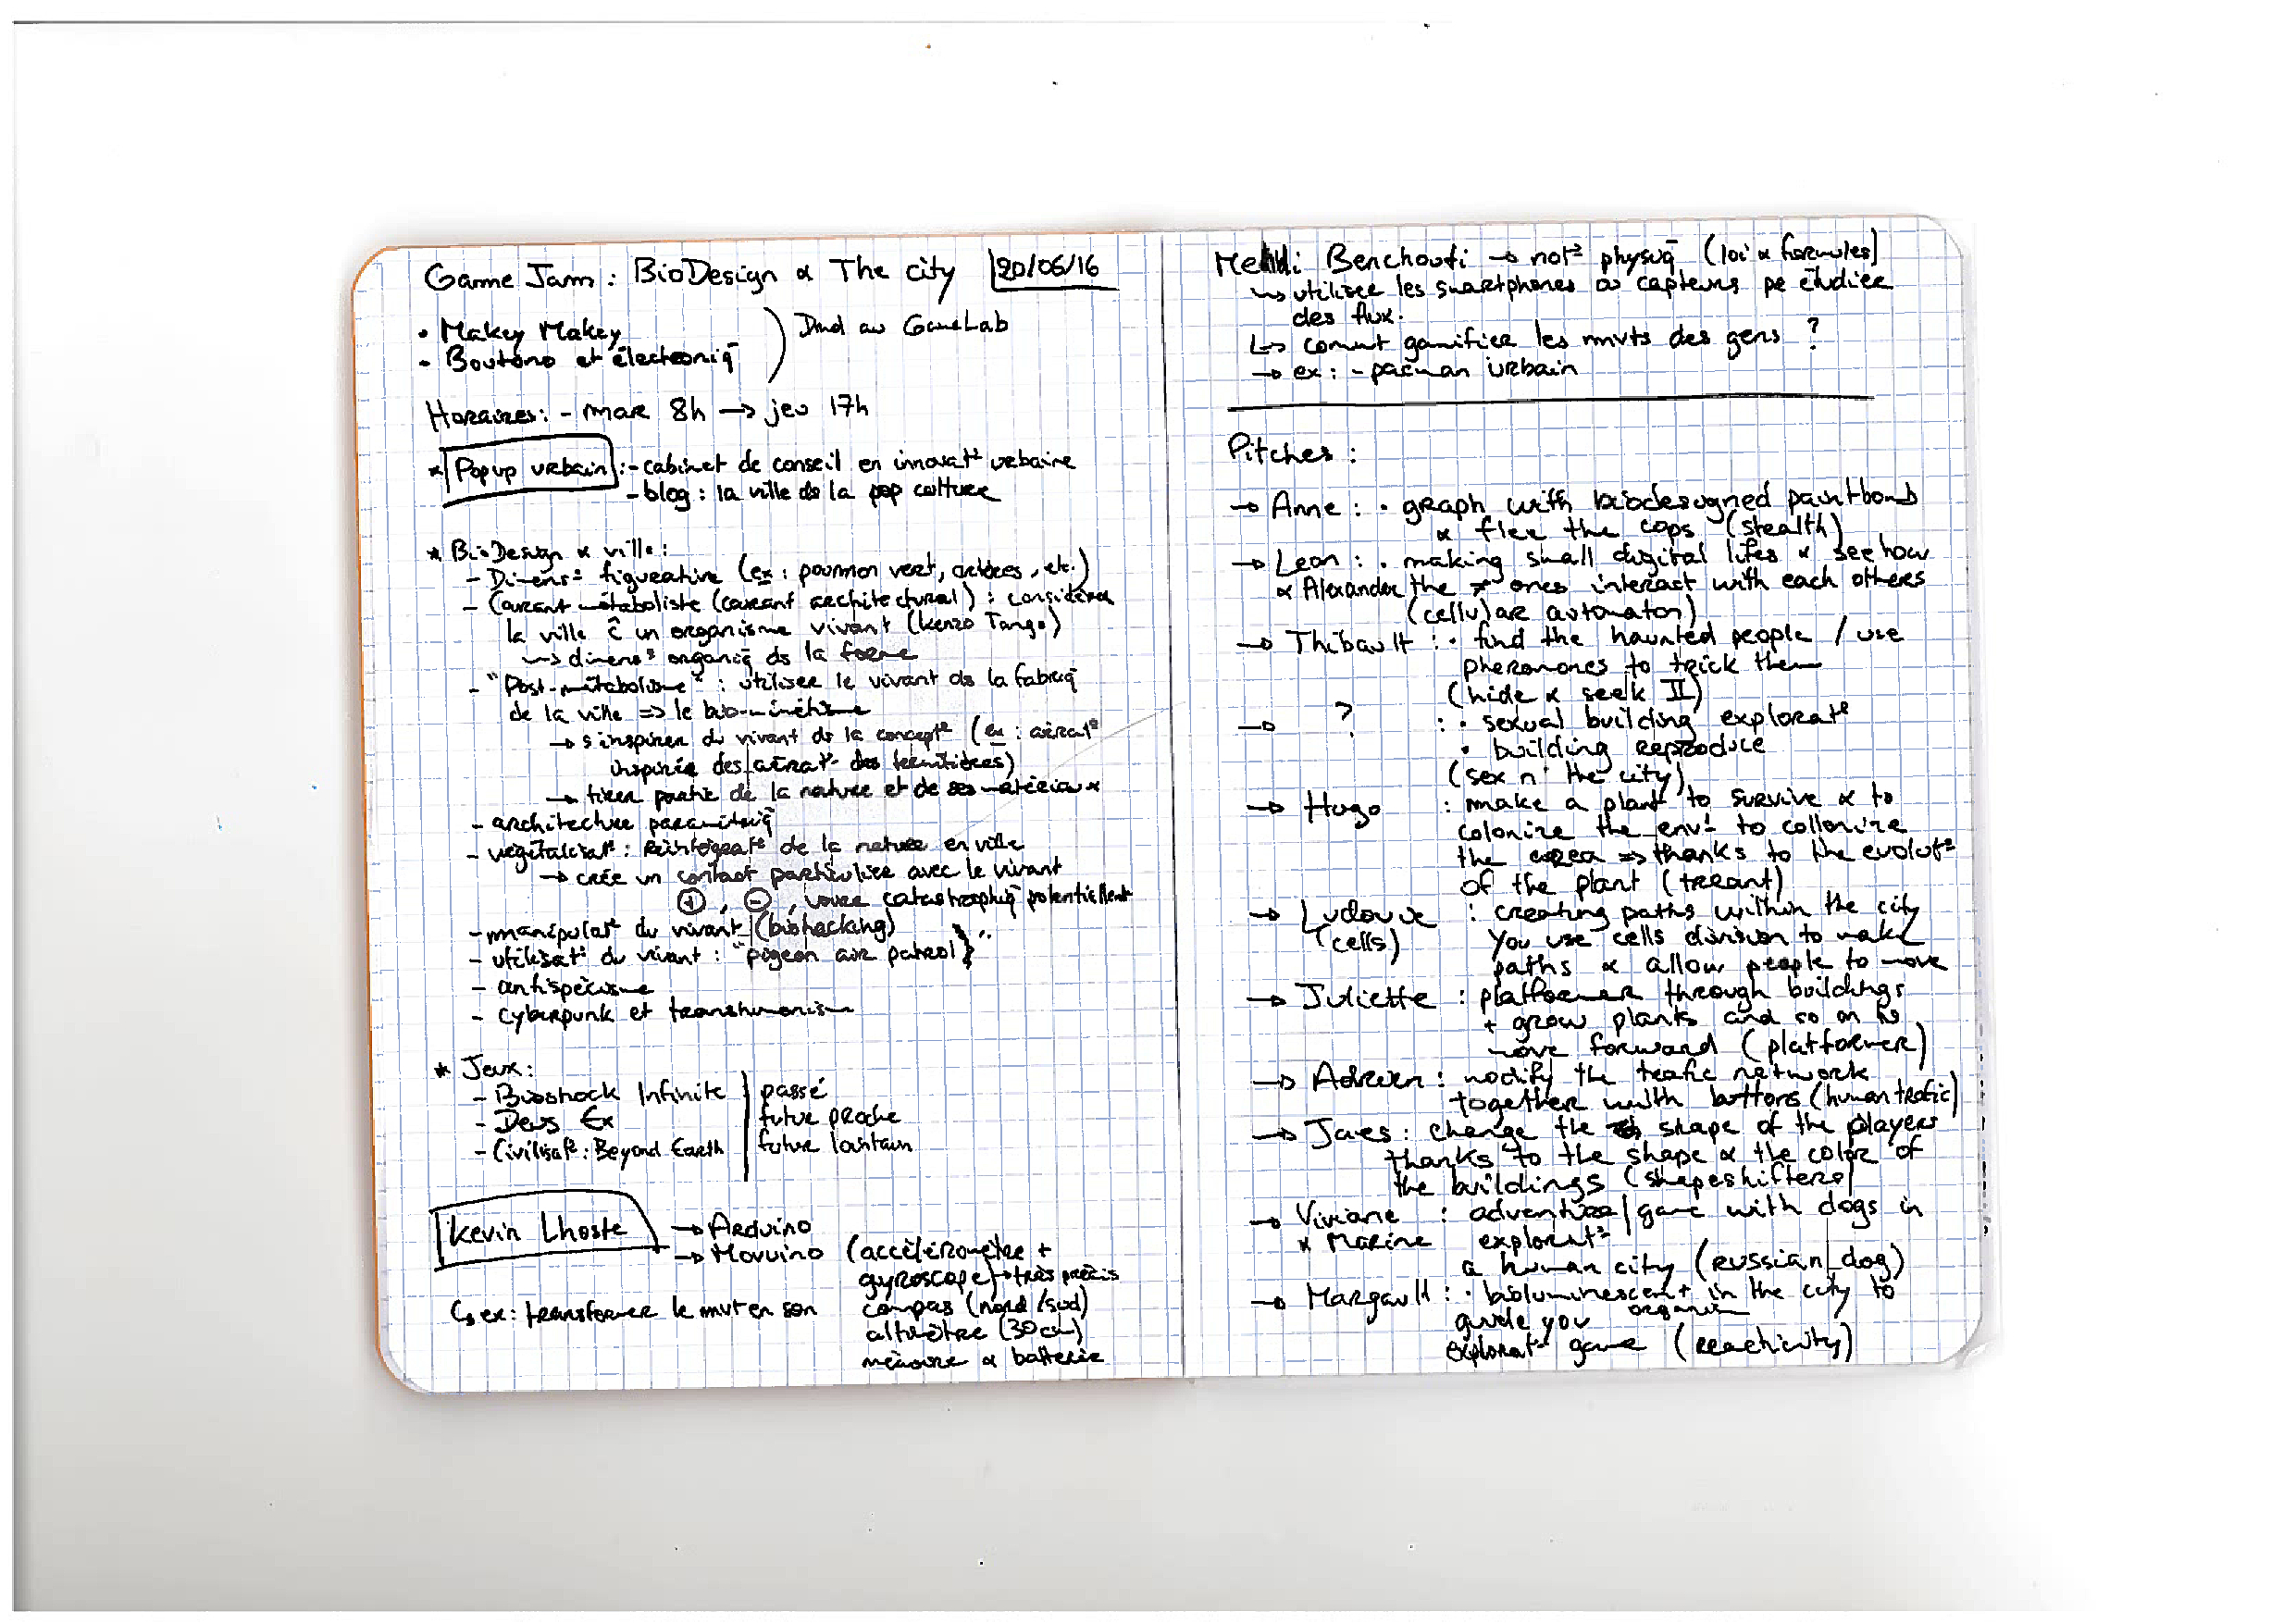 Game Jam : BioDesign & The city 20/06/16
• Makey Makey
- Boutons et électroniq̄
) Dmd au GameLab
Horaires : - mar 8h → jeu 17h
* Popup urbain : - cabinet de conseil en innovatº urbaine
- blog : la ville ds la pop culture
* BioDesign & ville :
- Dimensº figurative (ex : poumon vert, artères, etc.)
- Courant métaboliste (courant architectural) : considérer
la ville ĉ un organisme vivant (Kenzo Tange)
↳ dimensº organiq̄ ds la forme
- "Post-métabolisme" : utiliser le vivant ds la fabriq̄
de la ville => le bio-mimétisme
→ s'inspirer du vivant ds la conceptº (ex : aératº
inspirée des aératº des termitières)
→ tirer partie de la nature et de ses matériaux
- architecture paramétriq̄
- végétalisatº : Réintégratº de la nature en ville
→ crée un contact particulier avec le vivant
⊕, ⊖, voire catastrophiq̄ potentiellent
- manipulatº du vivant (biohacking)
- utilisatº du vivant : "pigeon air patrol"
- antispécisme
- cyberpunk et transhumanisme
* Jeux :
- Bioshock Infinite | passé
- Deus Ex | futur proche
- Civilisatº : Beyond Earth | futur lointain
Kevin Lhoste → Arduino
→ Movuino (accéléromètre +
gyroscope) → très précis
compas (nord/sud)
↳ ex : transformer le mvt en son
altimètre (30 cm)
mémoire & batterie
Mehdi Benchoufi → notº physiq̄ (loi & formules)
↳ utiliser les smartphones capteurs pr étudier
des flux.
↳ commt gamifier les mvts des gens ?
→ ex : - pacman urbain
Pitches :
→ Anne : • graph with biodesigned paintbomb
& flee the cops (stealth)
→ Leon : • making small digital lifes & see how
& Alexandre the ≠ ones interact with each others
(cellular automaton)
→ Thibault : • find the haunted people / use
pheromones to trick them
(hide & seek II)
→ ? : • sexual building exploratº
• building reproduce
(sex n' the city)
→ Hugo : make a plant to survive & to
colonize the envt to collonize
the area => thanks to the evolutº
of the plant (treant)
→ Ludovic : creating paths within the city
(cells) You use cells division to make
paths & allow people to move
→ Juliette : platformer through buildings
+ grow plants and so on to
move forward (platformer)
→ Adrien : modify the trafic network
together with buttons (human trafic)
→ James : change the shape of the players
thanks to the shape & the color of
the buildings (shapeshifters)
→ Viviane : adventure game with dogs in
& Marine exploratº
a human city (russian dog)
→ Margault : • bioluminescent organism in the city to
guide you
exploratº game (reacticity)